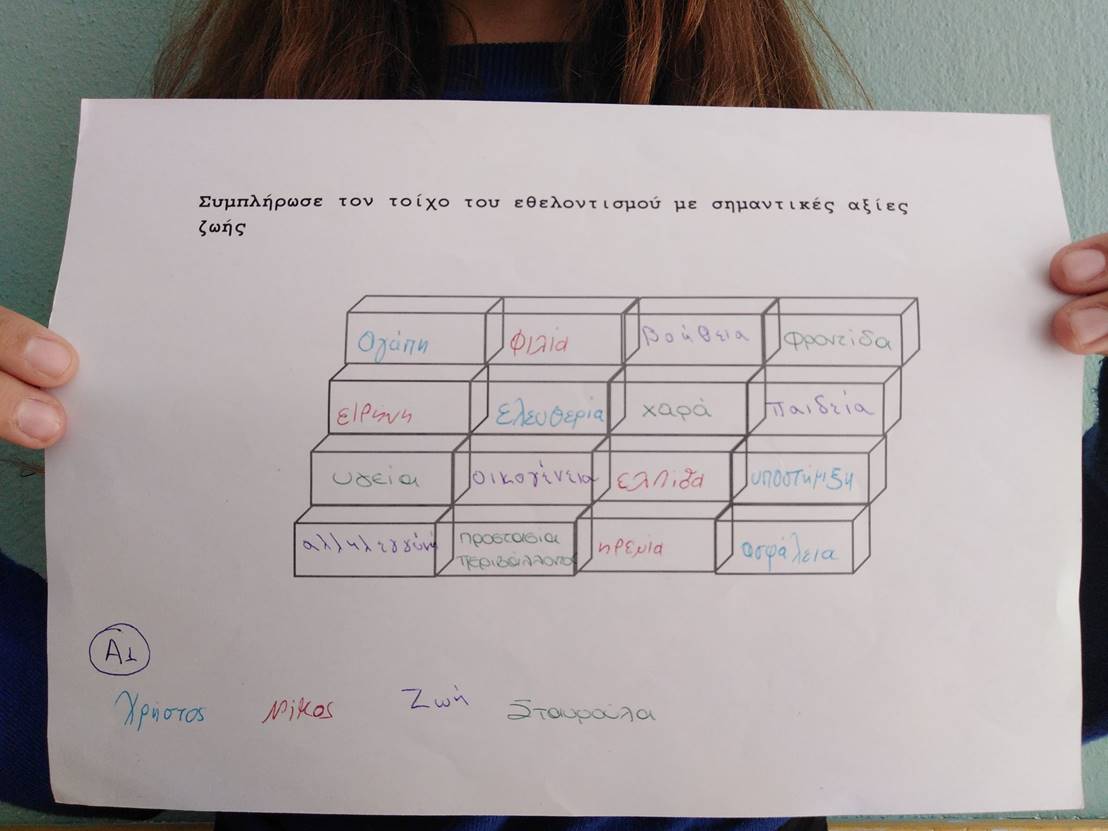 Συμπλήρωσε τον τοίχο του εθελοντισμού με σημαντικές αξίες
ζωής
αγάπη φιλία βοήθεια φροντίδα
ειρήνη ελευθερία χαρά παιδεία
υγεία οικογένεια ελπίδα υποστήριξη
αλληλεγγύη προστασία
περιβάλλοντος
ηρεμία ασφάλεια
Α1
Χρήστος Νίκος Ζωή Σταυρούλα